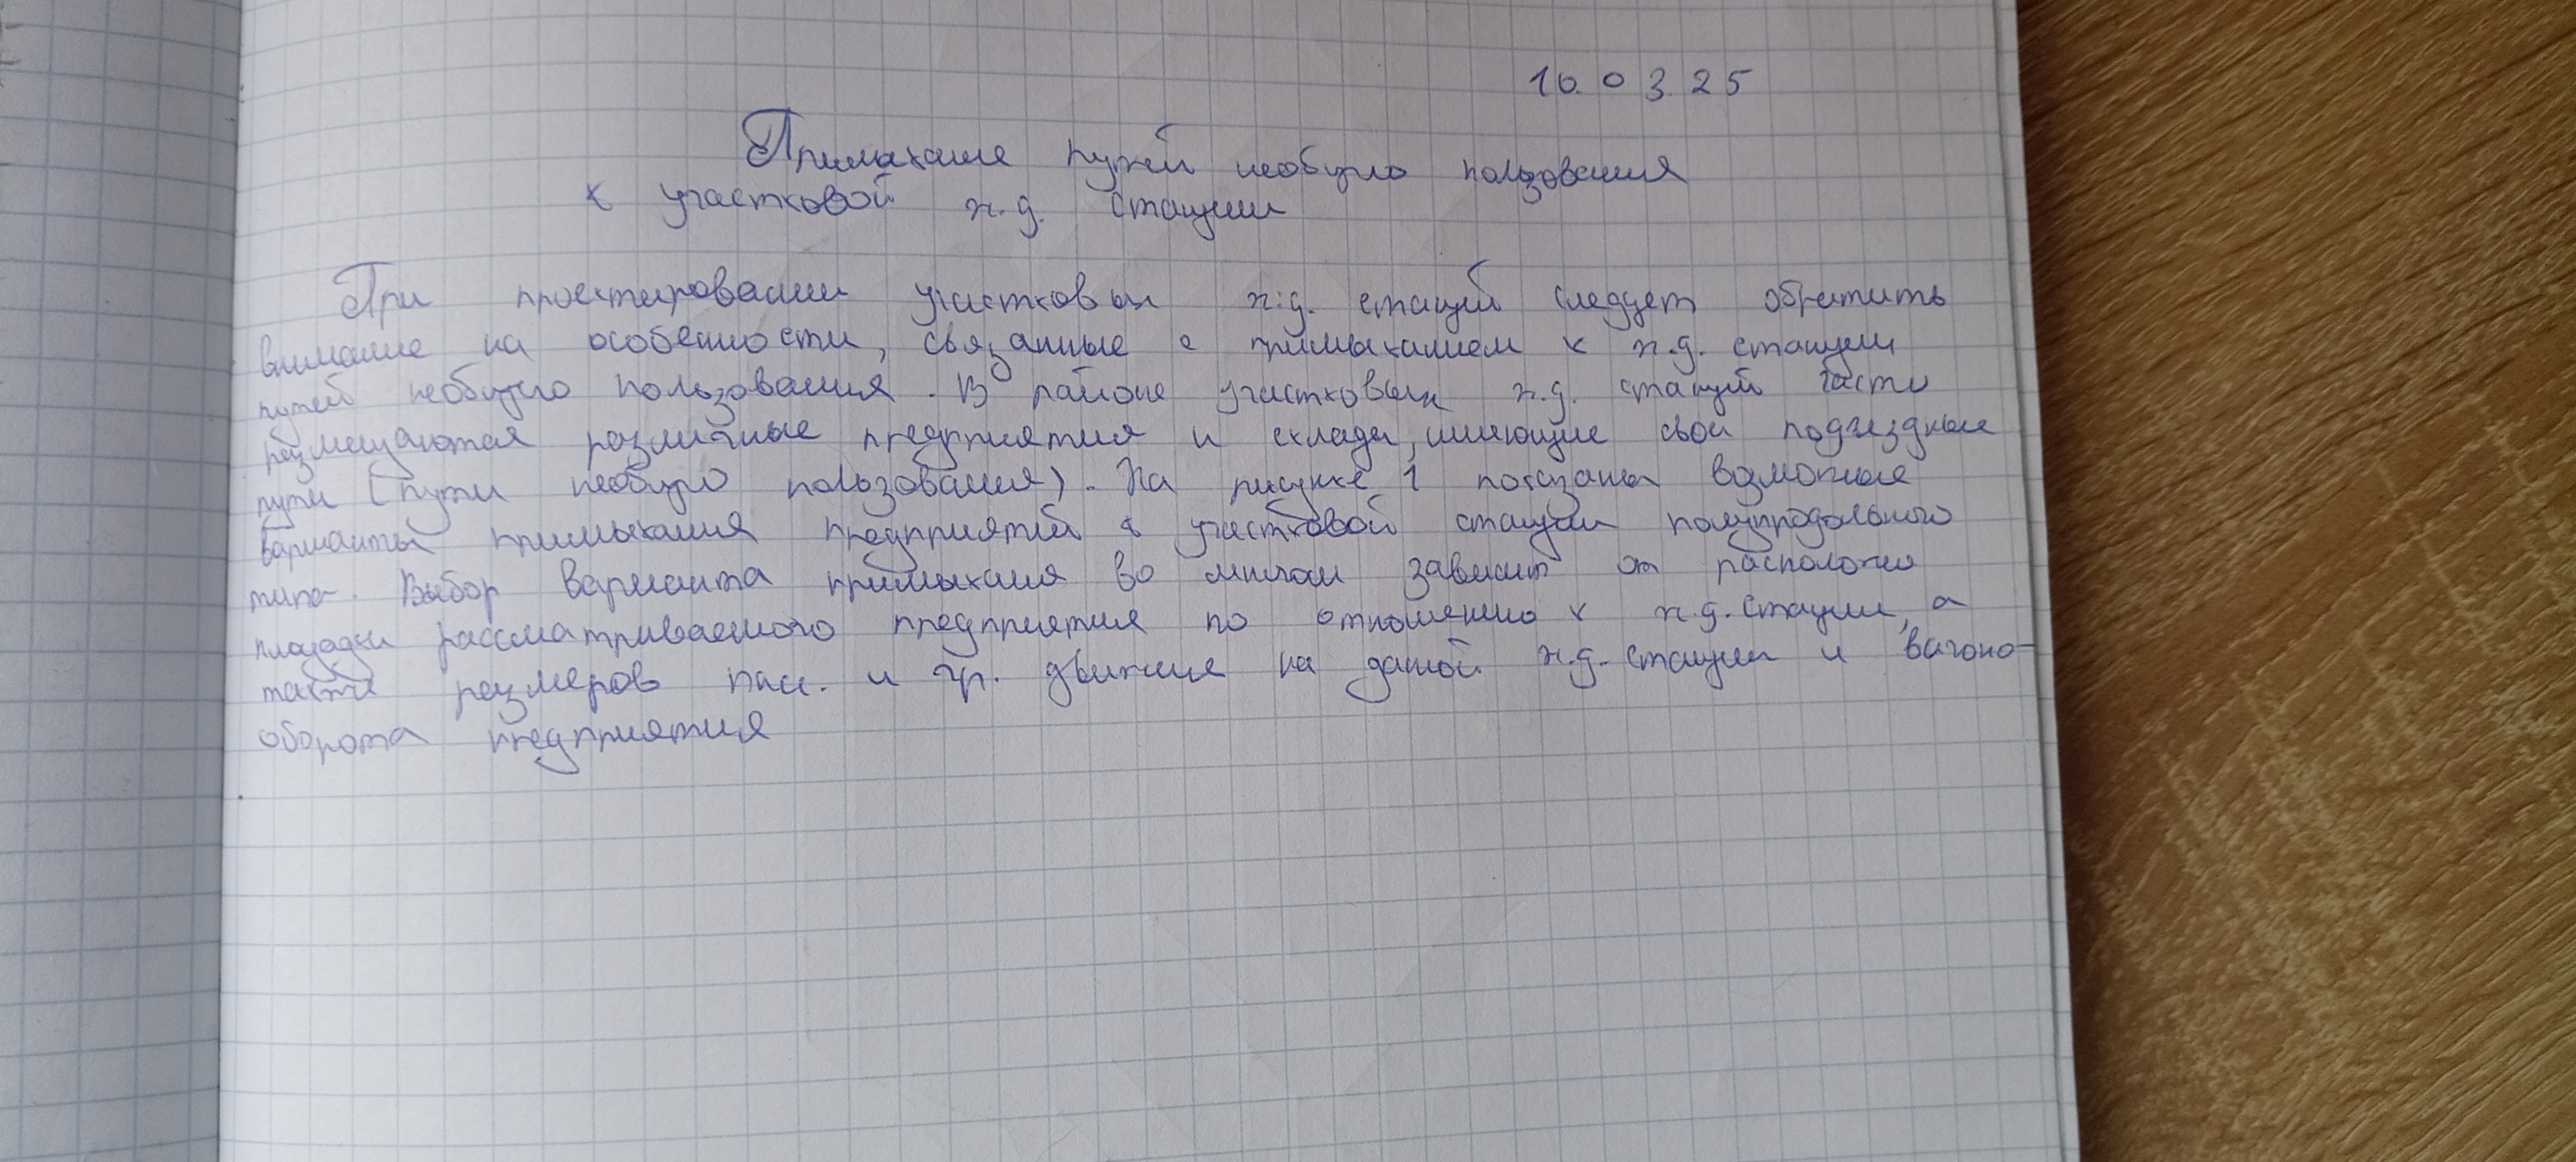 10.03.25
Примыкание путей необщего пользования
к участковой ж.д. станции
При проектировании участковых ж.д. станций следует обратить
внимание на особенности, связанные с примыканием к ж.д. станции
путей необщего пользования. В районе участковых ж.д. станций часто
размещаются различные предприятия и склады, имеющие свои подъездные
пути (пути необщего пользования). На рисунке 1 показаны возможные
варианты примыкания предприятий к участковой станции полупродольного
типа. Выбор варианта примыкания во многом зависит от располож
площадки рассматриваемого предприятия по отношению к ж.д. станции, а
также размеров пасс. и гр. движение на данной ж.д. станции и вагоно-
оборота предприятия